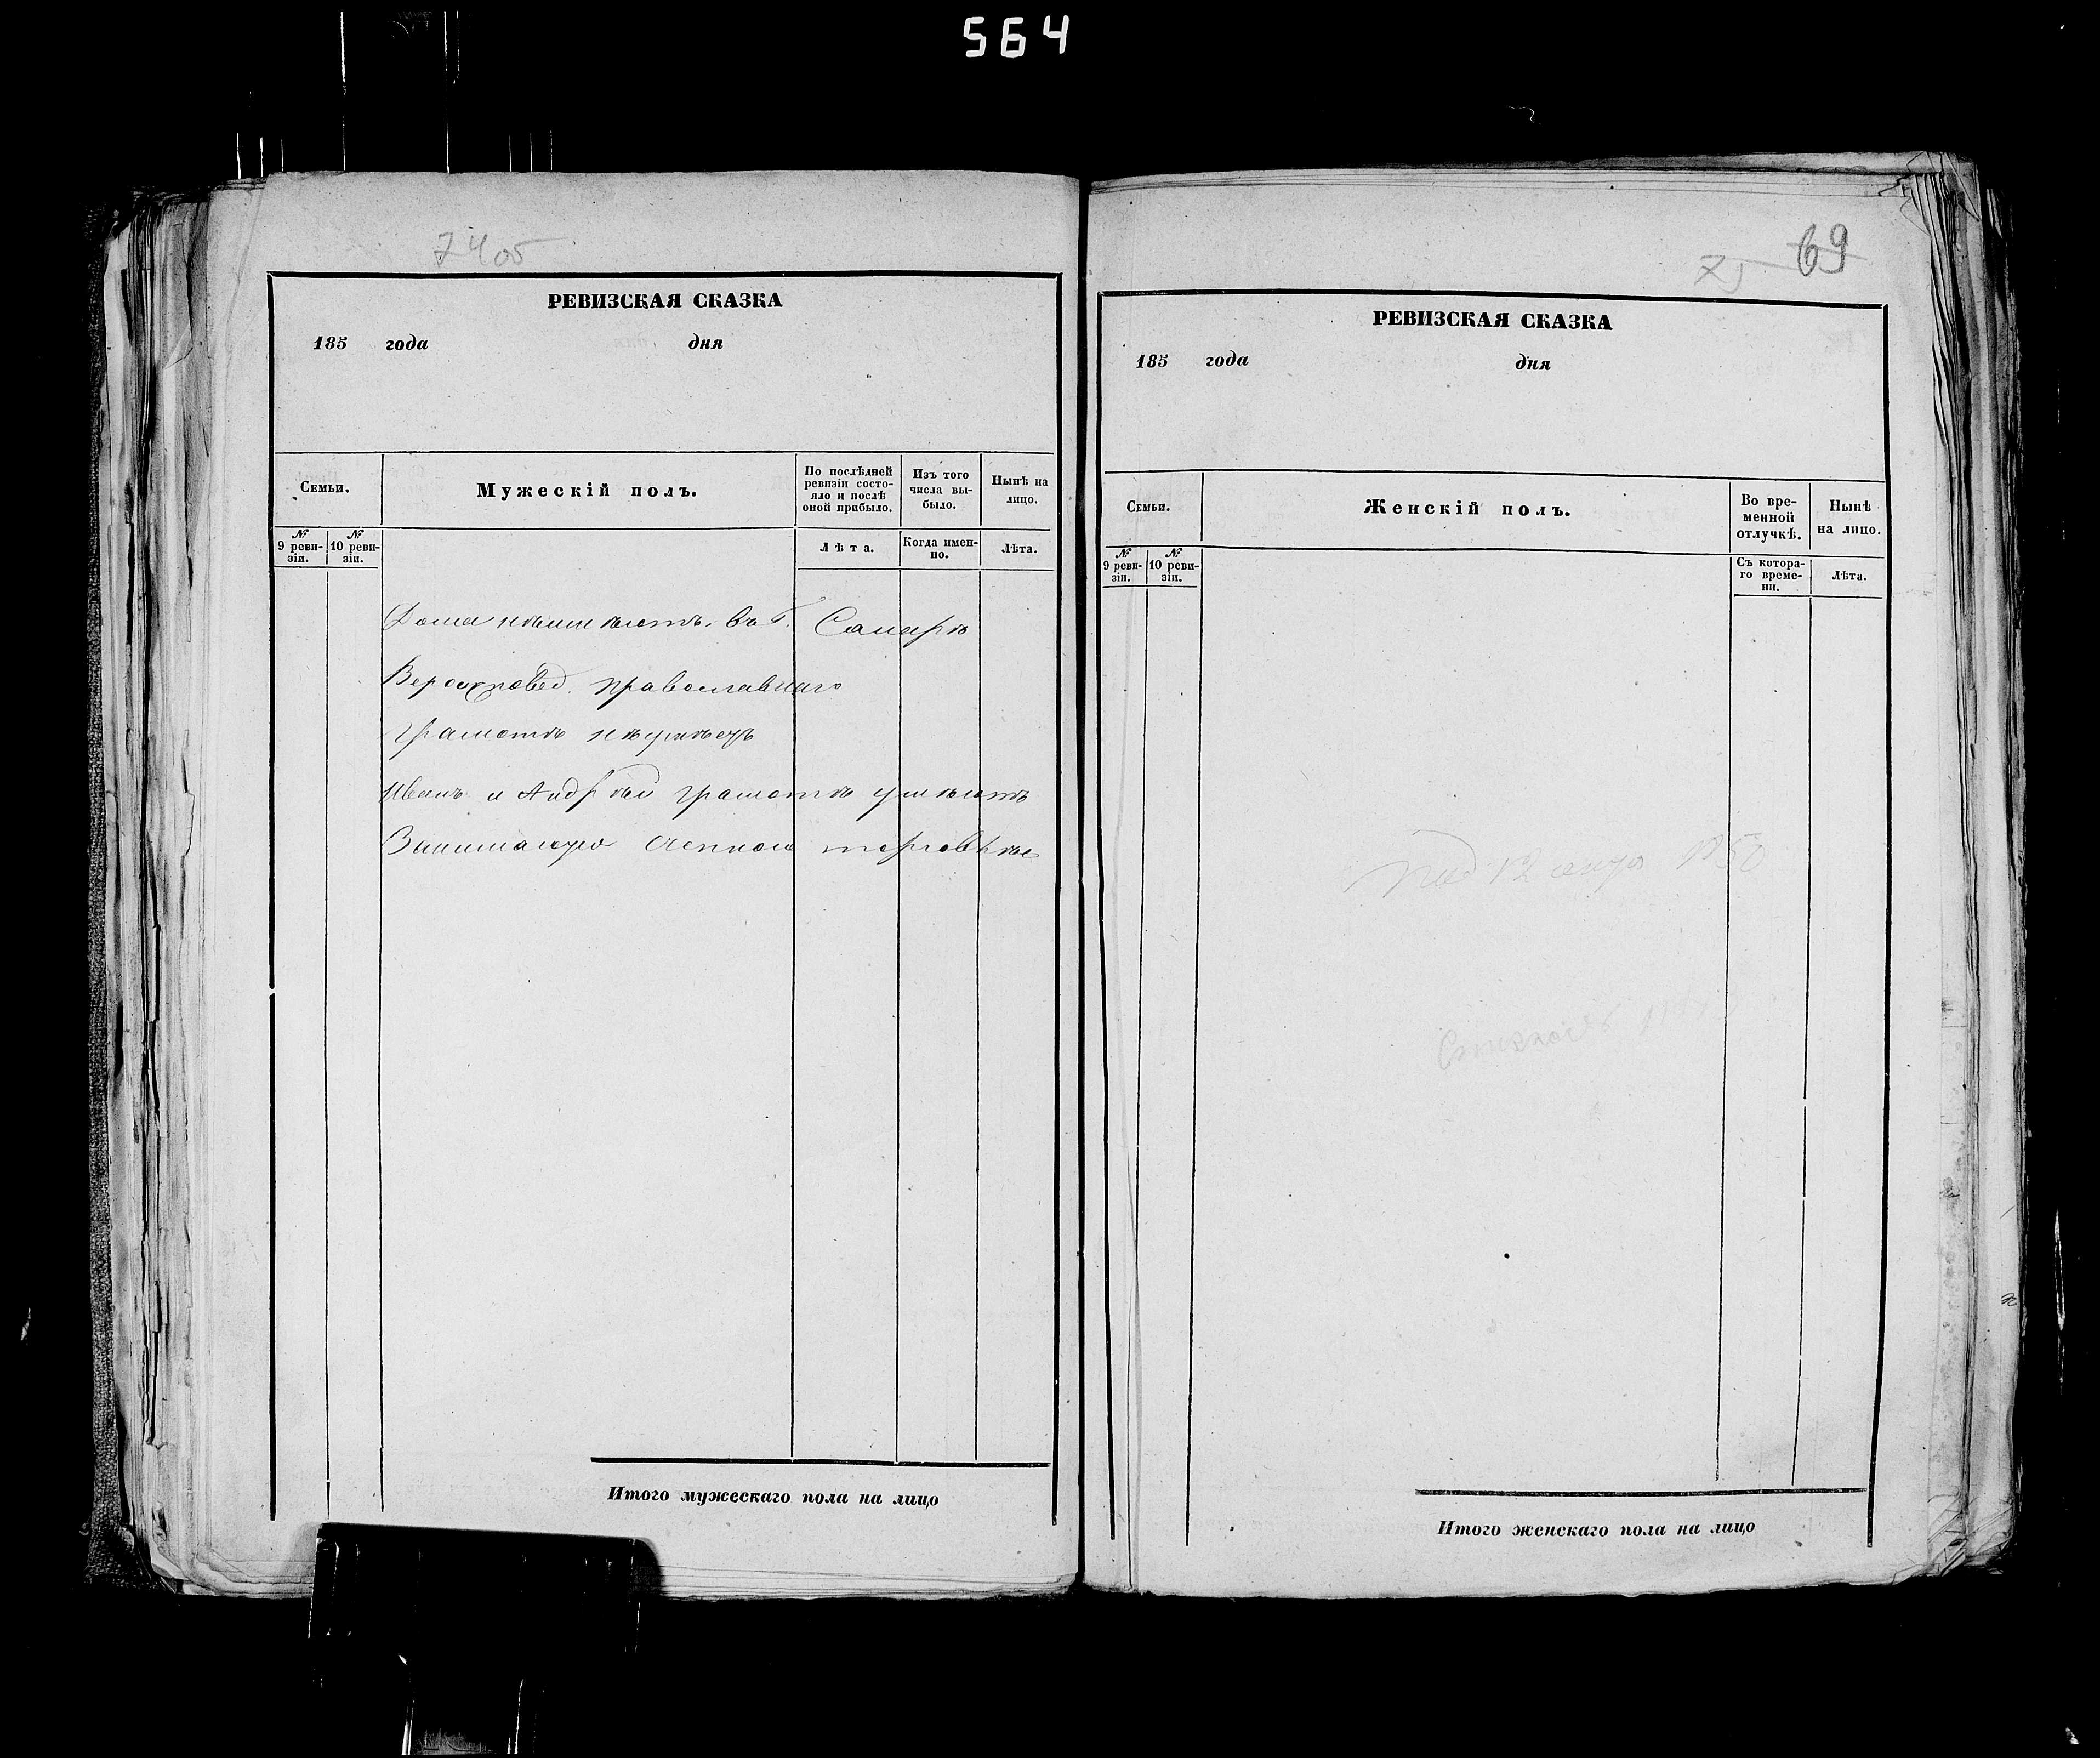 564
7400
РЕВИЗСКАЯ СКАЗКА
185 года дня
Семьи.
Мужескій полъ.
По послѣдней ревизіи состояло и послѣ оной прибыло.
Изъ того числа выбыло.
Нынѣ на лицо.
№ 9 ревизіи.
№ 10 ревизіи.
Лѣта.
Когда именно.
Лѣта.
Дома неимѣютъ въ Г. Самарѣ
Вероисповед. православнаго
грамотѣ неумѣетъ
Иванъ и Андрѣй грамотѣ умѣютъ
торговлѣю
Итого мужескаго пола на лицо
69
РЕВИЗСКАЯ СКАЗКА
185 года дня
Семьи.
Женскій полъ.
Во временной отлучкѣ.
Нынѣ на лицо.
№ 9 ревизіи.
№ 10 ревизіи.
Съ котораго времени.
Лѣта.
Итого женскаго пола на лицо